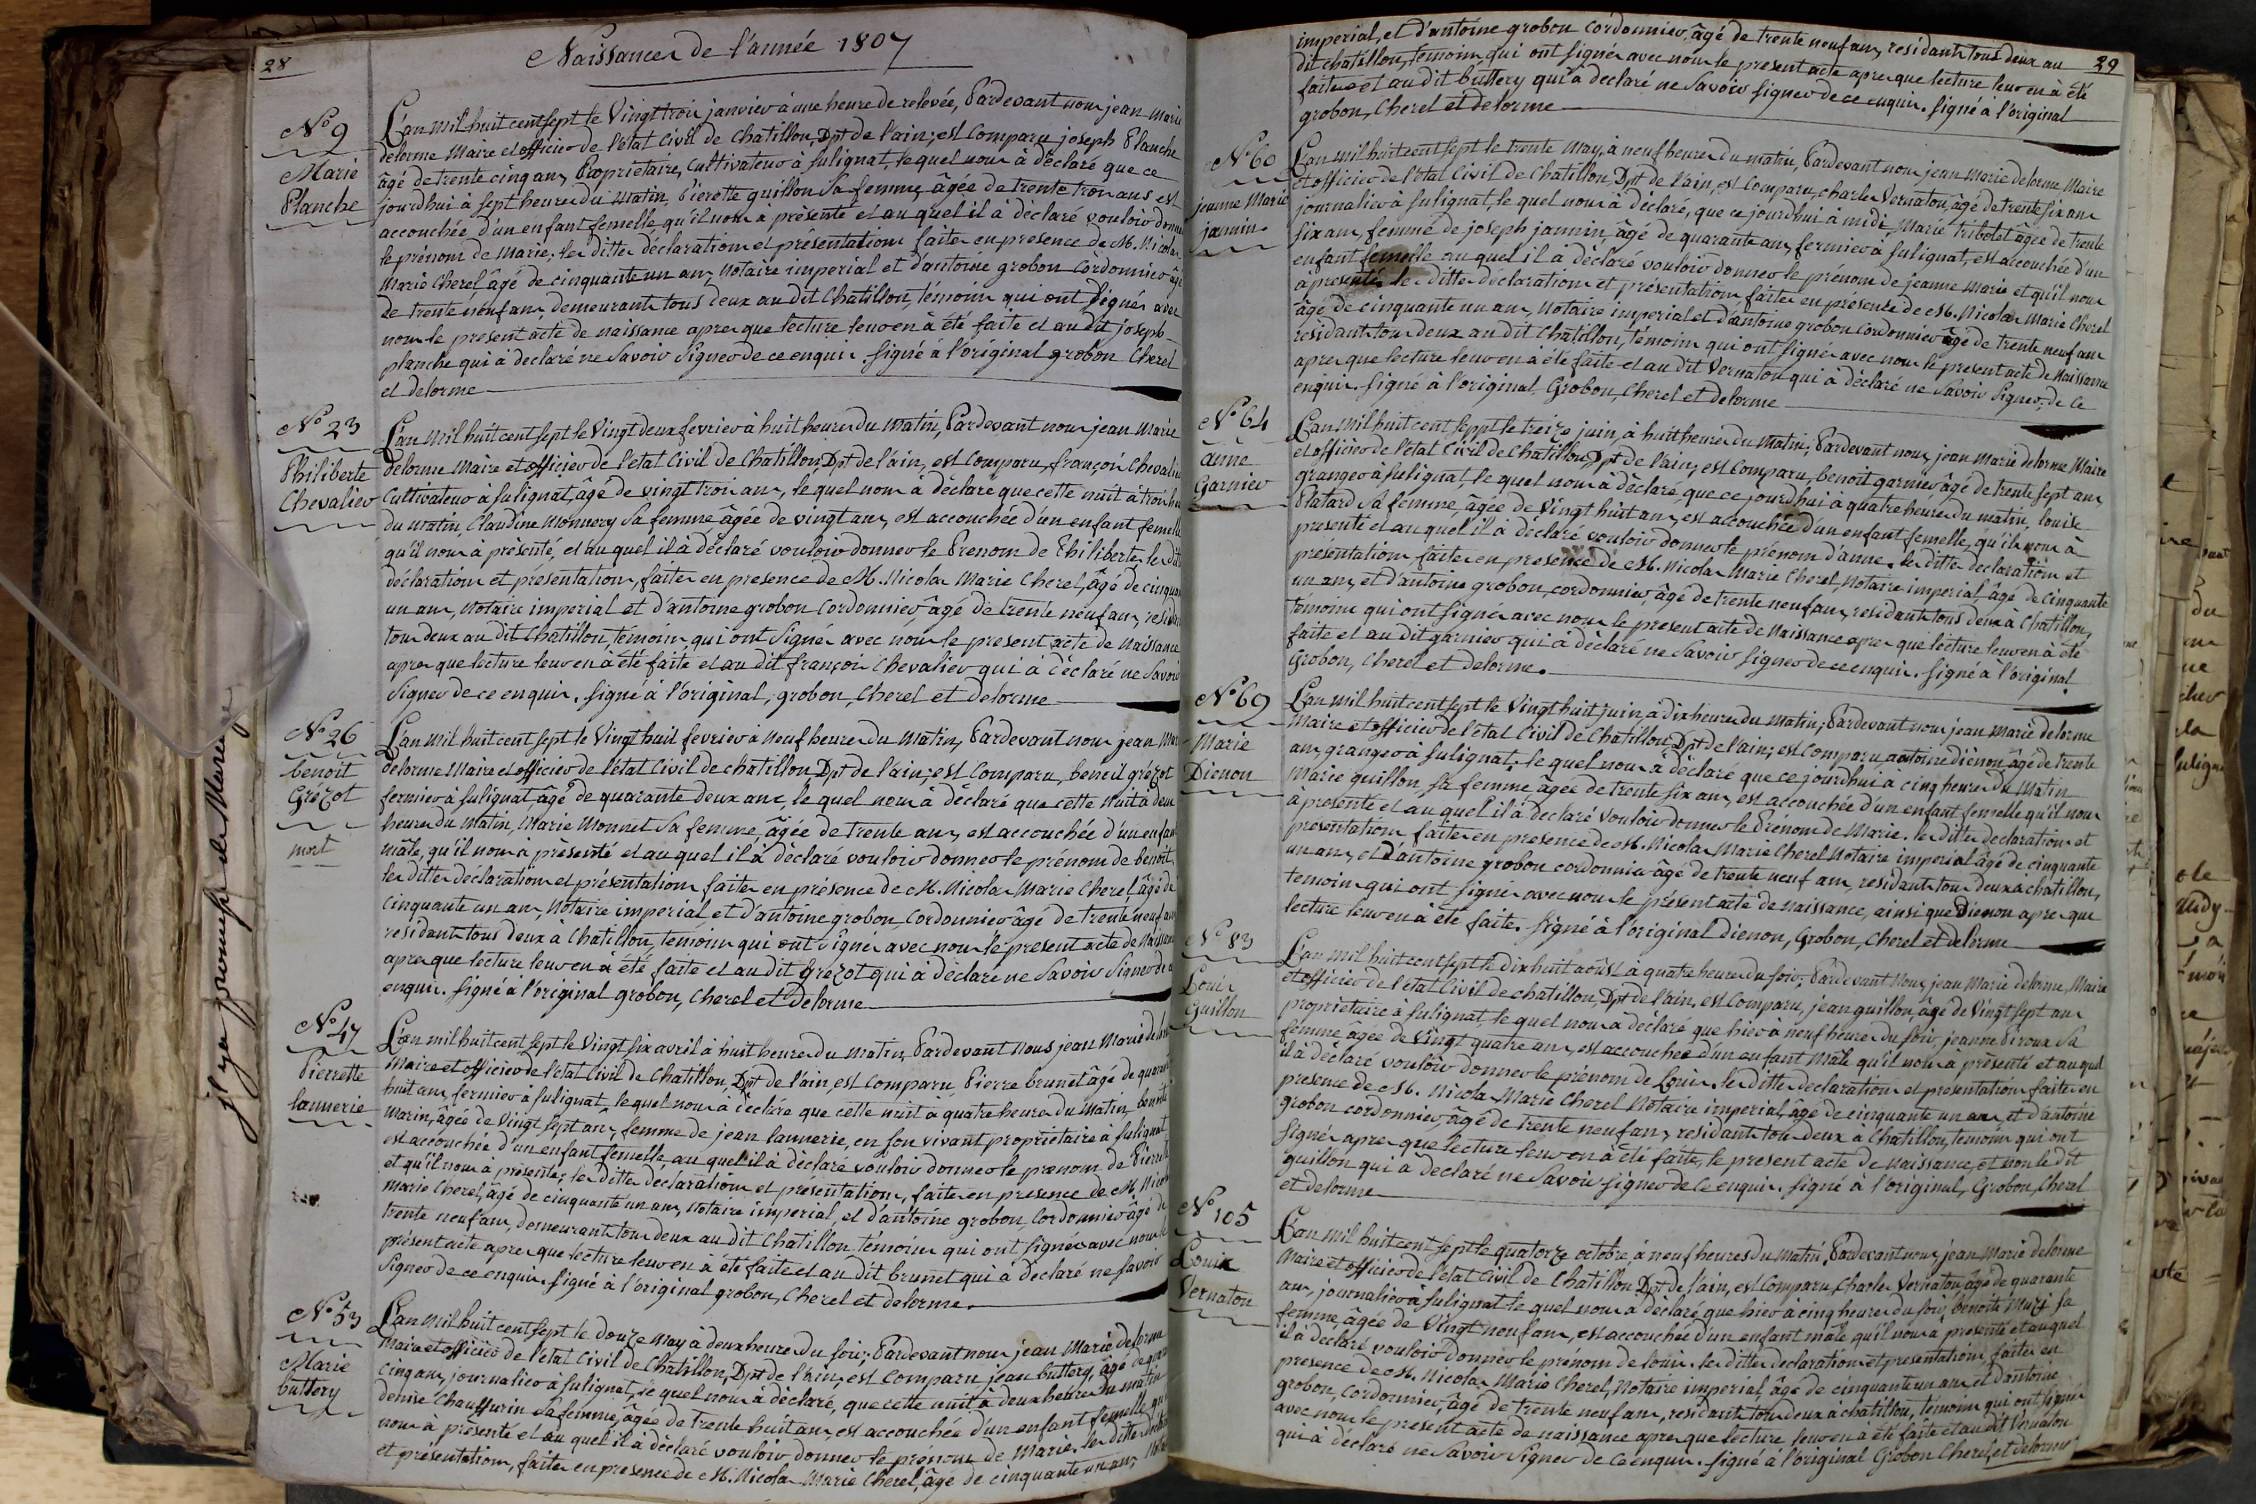 28
Naissances de l'année 1807
N° 9
Marie
Planche
L'an mil huit cent sept le Vingt trois janvier à une heure de relevée, Pardevant nous jean Marie
delorme Maire et officier de l'état Civil de Chatillon, Dpt de l'ain; est Comparu joseph Planche
âgé de trente cinq ans, Propriétaire, Cultivateur à sulignat, le quel nous à déclaré que ce
jourdhui à sept heures du matin, Pierrette guillon sa femme, âgée de trente trois ans est
accouchée d'un enfant femelle qu'il nous a présenté et au quel il à déclaré vouloir donner
le prénom de Marie; les dittes déclaration et présentation faites en presence de M. Nicolas
Marie Cherel âgé de cinquante un ans, Notaire imperial et d'antoine grobon Cordonnier âgé
de trente neuf ans, demeurant tous deux au dit Chatillon, témoins qui ont signés avec
nous le present acte de naissance apres que lecture leur en à été faite et au dit joseph
planche qui à déclaré ne Savoir Signer de ce enquis. Signé à l'original grobon Cherel
et delorme
N° 23
Philiberte
Chevalier
L'an Mil huit cent sept le Vingt deux fevrier à huit heures du Matin, Pardevant nous jean Marie
delorme Maire et officier de l'état Civil de Chatillon, Dpt de l'ain, est Comparu, françois Chevalier
Cultivateur à sulignat, âgé de vingt trois ans, le quel nous à déclaré que cette nuit à trois heures
du matin, Claudine Monnery sa femme âgée de vingt ans, est accouchée d'un enfant femelle
qu'il nous à présenté, et au quel il à déclaré vouloir donner le Prenom de Philiberte, les dittes
déclaration et présentation, faites en presence de M. Nicolas Marie Cherel, âgé de cinquante
un ans, Notaire imperial et d'antoine grobon Cordonnier, âgé de trente neuf ans, residant
tous deux au dit Chatillon, témoins qui ont Signés avec nous le present acte de Naissance
apres que lecture leur en à été faite et au dit françois Chevalier qui à déclaré ne Savoir
Signer de ce enquis. Signé à l'original, grobon, Cherel et delorme
N° 26
benoit
Grézot
mort
L'an Mil huit cent sept le Vingt huit fevrier à Neuf heures du Matin, Pardevant nous jean Marie
delorme Maire et officier de l'état Civil de chatillon Dpt de l'ain; est Comparu, benoit grézot
fermier à sulignat, âgé de quarante deux ans, le quel nous à déclaré que cette Nuit à deux
heures du Matin, Marie Monnet sa femme, âgée de trente ans, est accouchée d'un enfant
mâle, qu'il nous a présenté et au quel il à déclaré vouloir donner le prénom de benoit,
les dittes déclaration et présentation faites en présence de M. Nicolas Marie Cherel, âgé de
Cinquante un ans, Notaire imperial et d'antoine grobon, Cordonnier âgé de trente neuf ans
residant tous deux à Chatillon, temoins qui ont signés avec nous le present acte de Naissance
apres que lecture leur en à été faite et au dit Grézot qui à déclaré ne Savoir Signer de ce
enquis. Signé à l'original grobon, Cherel et delorme
N° 47
Pierrette
lannerie
L'an mil huit cent sept le Vingt six avril à huit heures du Matin, Pardevant Nous jean Marie delorme
Maire et officier de l'état Civil de Chatillon, Dpt de l'ain, est Comparu Pierre brunet âgé de quarante
huit ans, fermier à sulignat, lequel nous à déclaré que cette nuit à quatre heures du Matin, benoite
Marin, âgée de Vingt sept ans, femme de jean lannerie, en son vivant proprietaire à sulignat
est accouchée d'un enfant femelle, au quel il à déclaré vouloir donner le prenom de Pierrette
et qu'il nous à présenté; les dittes déclaration et présentation, faites en presence de M. Nicolas
Marie Cherel, âgé de cinquante un ans, Notaire imperial, et d'antoine grobon, Cordonnier âgé de
trente neuf ans, demeurant tous deux au dit Chatillon témoins qui ont signés avec nous le
présent acte apres que lecture leur en à été faite et au dit brunet qui à déclaré ne savoir
Signer de ce enquis. Signé à l'original grobon, Cherel et delorme.
N° 53
Marie
buttery
L'an Mil huit cent sept le douze May à deux heures du soir; Pardevant nous jean Marie delorme
Maire et officier de l'état Civil de Chatillon, Dpt de l'ain, est Comparu jean buttery, âgé de quarante
cinq ans, journalier à sulignat, le quel nous à déclaré, que cette nuit à deux heures du matin
denise Chauffurin sa femme, âgée de trente huit ans est accouchée d'un enfant femelle qu'il
nous à présenté et au quel il à déclaré vouloir donner le prénom de Marie. les dittes déclaration
et présentation, faites en presence de M. Nicolas Marie Cherel, âgé de cinquante un ans, Notaire
jl ya promesse de Mariage
29
imperial, et d'antoine grobon Cordonnier, âgé de trente neuf ans, residants tous deux au
dit chatillon, témoins qui ont signés avec nous le present acte apres que lecture leur en à été
faite et au dit buttery qui à déclaré ne Savoir Signer de ce enquis. Signé à l'original
grobon, Cherel et delorme
N° 60
jeanne Marie
jannin
L'an mil huit cent sept le trente May, à neuf heures du matin, Pardevant nous jean Marie delorme Maire
et officier de l'état Civil de Chatillon, Dpt de l'ain, est Comparu, charles Vernaton, âgé de trente six ans
journalier à sulignat, le quel nous à déclaré, que ce jourdhui à midi, Marie tribolet âgée de trente
six ans, femme de joseph jannin, âgé de quarante ans, fermier à sulignat, est accouchée d'un
enfant femelle au quel il à déclaré vouloir donner le prénom de jeanne Marie et qu'il nous
à présenté, les dittes déclaration et présentation faites en présence de M. Nicolas Marie Cherel
âgé de cinquante un ans, Notaire imperial et d'antoine grobon Cordonnier âgé de trente neuf ans
residant tous deux au dit Chatillon, témoins qui ont signés avec nous le present acte de Naissance
apres que lecture leur en a été faite et au dit Vernaton qui à déclaré ne Savoir Signer, de ce
enquis. Signé à l'original, Grobon, Cherel et delorme
N° 64
anne
Garnier
L'an Mil huit cent sept le treize juin, à huit heures du Matin; Pardevant nous, jean Marie delorme Maire
et officier de l'état Civil de Chatillon, Dpt de l'ain; est Comparu, benoit garnier âgé de trente sept ans
granger à sulignat, le quel nous à déclaré que ce jourdhui à quatre heures du matin, louise
Platard sa femme, âgée de Vingt huit ans, est accouchée d'un enfant femelle, qu'il nous à
présenté et au quel il à déclaré vouloir donner le prénom d'anne. les dittes déclaration et
présentation faites en presence de M. Nicolas Marie Cherel, Notaire imperial, âgé de Cinquante
un ans, et d'antoine grobon, cordonnier, âgé de trente neuf ans, residant tous deux à Chatillon,
témoins qui ont signés avec nous le present acte de Naissance apres que lecture leur en à été
faite et au dit garnier qui à déclaré ne Savoir Signer de ce enquis. Signé à l'original
Grobon, Cherel et delorme.
N° 69
Marie
Dienon
L'an Mil huit cent sept le Vingt huit juin, à dix heures du Matin; Pardevant nous jean Marie delorme
Maire et officier de l'état Civil de Chatillon, Dpt de l'ain; est Comparu antoine dienon, âgé de trente
ans, granger à sulignat; le quel nous à déclaré que ce jourdhui à cinq heures du Matin
Marie guillon, sa femme, âgée de trente six ans, est accouchée d'un enfant femelle qu'il nous
à présenté et au quel il à déclaré vouloir donner le Prénom de Marie. les dittes déclaration et
présentation faites en presence de M. Nicolas Marie Cherel Notaire imperial âgé de cinquante
un ans, et d'antoine grobon cordonnier âgé de trente neuf ans, residant tous deux à chatillon,
temoins qui ont signé avec nous le présent acte de naissance, ainsi que Dienon apres que
lecture leur en à été faite. Signé à l'original dienon, Grobon, Cherel et delorme
N° 83
Louis
Guillon
L'an mil huit cent sept le dix huit août à quatre heures du soir; Pardevant Nous, jean Marie delorme, Maire
et officier de l'état Civil de chatillon, Dpt de l'ain, est Comparu, jean guillon, âgé de Vingt sept ans
proprietaire à sulignat, le quel nous a déclaré que hier à neuf heures du soir, jeanne Piroux sa
femme, âgée de vingt quatre ans, est accouchée d'un enfant Male qu'il nous à présenté et au quel
il à déclaré vouloir donner le prénom de Louis. les dittes declaration et presentation faites en
presence de M. Nicolas Marie Cherel Notaire imperial, âgé de cinquante un ans, et d'antoine
grobon cordonnier, âgé de trente neuf ans, residant tous deux à Chatillon, temoins qui ont
signés apres que lecture leur en à été faite, le present acte de Naissance, et non le dit
guillon qui à déclaré ne Savoir Signer de Ce enquis. Signé à l'original, Grobon, Cherel
et delorme
N° 105
Louis
Vernaton
L'an mil huit cent sept le quatorze octobre, à neuf heures du Matin, Pardevant nous, jean Marie delorme
Maire et officier de l'état Civil de Chatillon Dpt de l'ain, est Comparu, Charles Vernaton, âgé de quarante
ans, journalier à sulignat le quel nous a déclaré, que hier à cinq heures du soir, benoite Muzi sa
femme, âgée de Vingt neuf ans, est accouchée d'un enfant mâle qu'il nous à présenté et au quel
il à déclaré vouloir donner le prénom de louis. les dittes declaration et presentation, faites en
presence de M. Nicolas Marie Cherel, Notaire imperial, âgé de cinquante un ans et d'antoine
grobon, Cordonnier, âgé de trente neuf ans, residants tous deux à chatillon, temoins qui ont signés
avec nous le present acte de naissance apres que lecture leur en à été faite et au dit Vernaton
qui à déclaré ne Savoir Signer de Ce enquis. Signé à l'original Grobon Cherel, et delorme